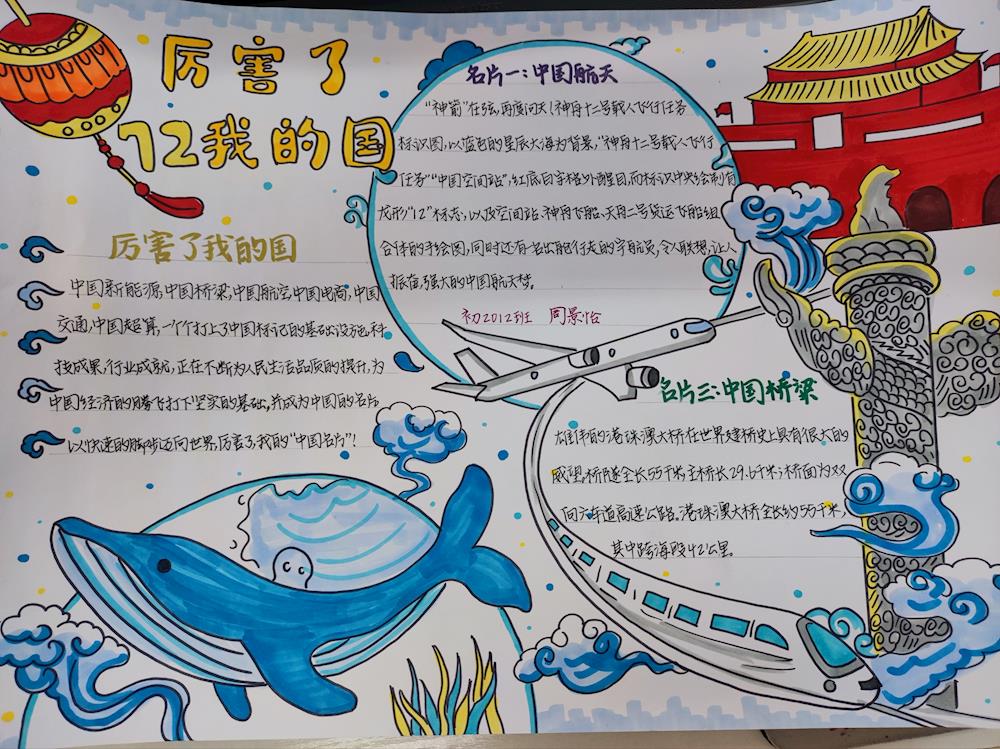 厉害了
72我的国
厉害了我的国
中国新能源,中国桥梁,中国航空,中国电商,中国
交通,中国超算,一个个打上了中国标记的基础设施,科
技成果,行业成就,正在不断为人民生活品质的提升,为
中国经济的腾飞打下坚实的基础,并成为中国的名片
以快速的脚步迈向世界,厉害了,我的"中国名片"!
名片一:中国航天
"神箭"在弦,再度问天!神舟十二号载人飞行任务
标识图,以蓝色的星辰大海为背景,"神舟十二号载人飞行
任务""中国空间站",红底白字格外醒目,而标识中央绘制有
龙形"12"标志,以及空间站、神舟飞船、天舟二号货运飞船组
合体的手绘图,同时还有名出舱行走的宇航员,令人联想,让人
振奋,强大的中国航天梦。
初2012班 周景怡
名片三:中国桥梁
雄伟的港珠澳大桥在世界建桥史上具有很大的
威望,桥隧全长55千米,主桥长29.6千米;桥面为双
向六车道高速公路。港珠澳大桥全长约55千米,
其中跨海段42公里。